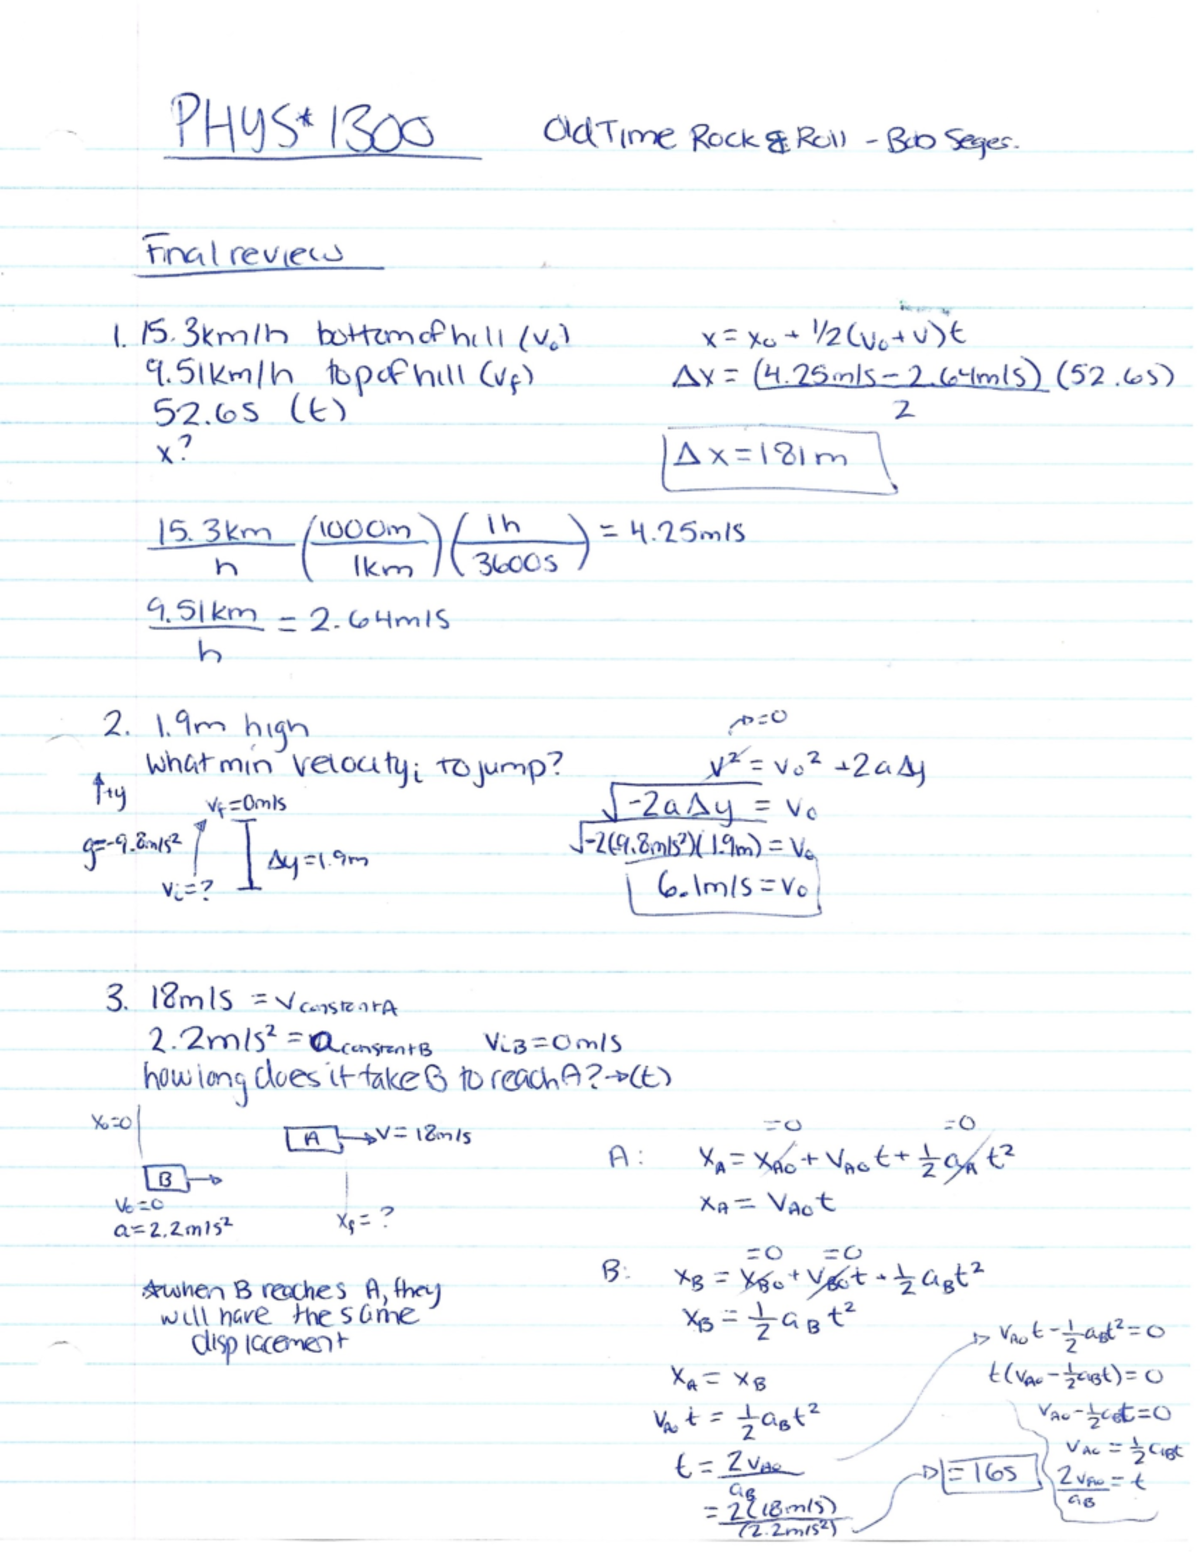 PHYS*1300
Old Time Rock & Roll - Bob Seges.
Final review
1. 15.3km/h bottom of hill (v₀)
9.51km/h top of hill (vf)
52.6s (t)
x?
x = x₀ + 1/2(v₀+v)t
Δx = (4.25m/s - 2.64m/s)(52.6s)
2
Δx = 181m
15.3km (1000m) (1h) = 4.25m/s
h (1km) (3600s)
9.51km = 2.64m/s
h
2. 1.9m high
what min velocityi to jump?
↑+y
vf=0m/s
g=-9.8m/s²
Δy=1.9m
vi=?
→=0
v² = v₀² + 2aΔy
√-2aΔy = v₀
√-2(9.8m/s²)(1.9m) = v₀
6.1m/s = v₀
3. 18m/s = vconstantA
2.2m/s² = aconstantB viB=0m/s
how long does it take B to reach A? → (t)
x₀=0
A → v=18m/s
B →
v₀=0
a=2.2m/s²
xf=?
*when B reaches A, they
will have the same
displacement
=0 =0
A: xA = xA0 + vA0t + ½aAt²
xA = vA0t
=0 =0
B: xB = xB0 + vB0t + ½aBt²
xB = ½aBt²
xA = xB
vA0t = ½aBt²
t = 2vA0
aB
= 2(18m/s)
(2.2m/s²)
→ =16s
→ vA0t - ½aBt² = 0
t(vA0 - ½aBt) = 0
vA0 - ½aBt = 0
vA0 = ½aBt
2vA0 = t
aB